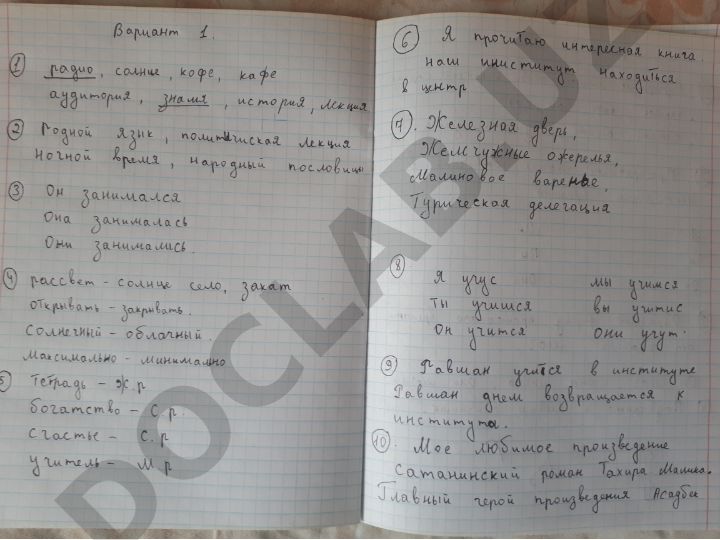 Вариант 1.
1 радио, солнце, кофе, кафе
аудитория, знамя, история, лекция
2 Родной язык, политическая лекция
ночной время, народный пословицы
3 Он занимался
Она занималась
Они занимались.
4 рассвет - солнце село, закат
открывать - закрывать.
Солнечный - облачный.
Максимально - минимално
5 Тетрадь - ж.р
богатство - с.р.
счастье - с.р
учитель - м.р
6 Я прочитаю интересная книга.
наш иниститут находиться
в центр
7. Железная дверь,
Жемчужные ожерелья,
Малиновое варенье,
Турическая делегация
8
Я учус мы учимся
ты учишся вы учитис
Он учится они учут.
9 Равшан учится в институте
Равшан днем возвращается к
института.
10. Мое любимое произведение
сатанинский роман Тахира Малика.
Главный герой произведения Асадбек
DOCLAB.UZ